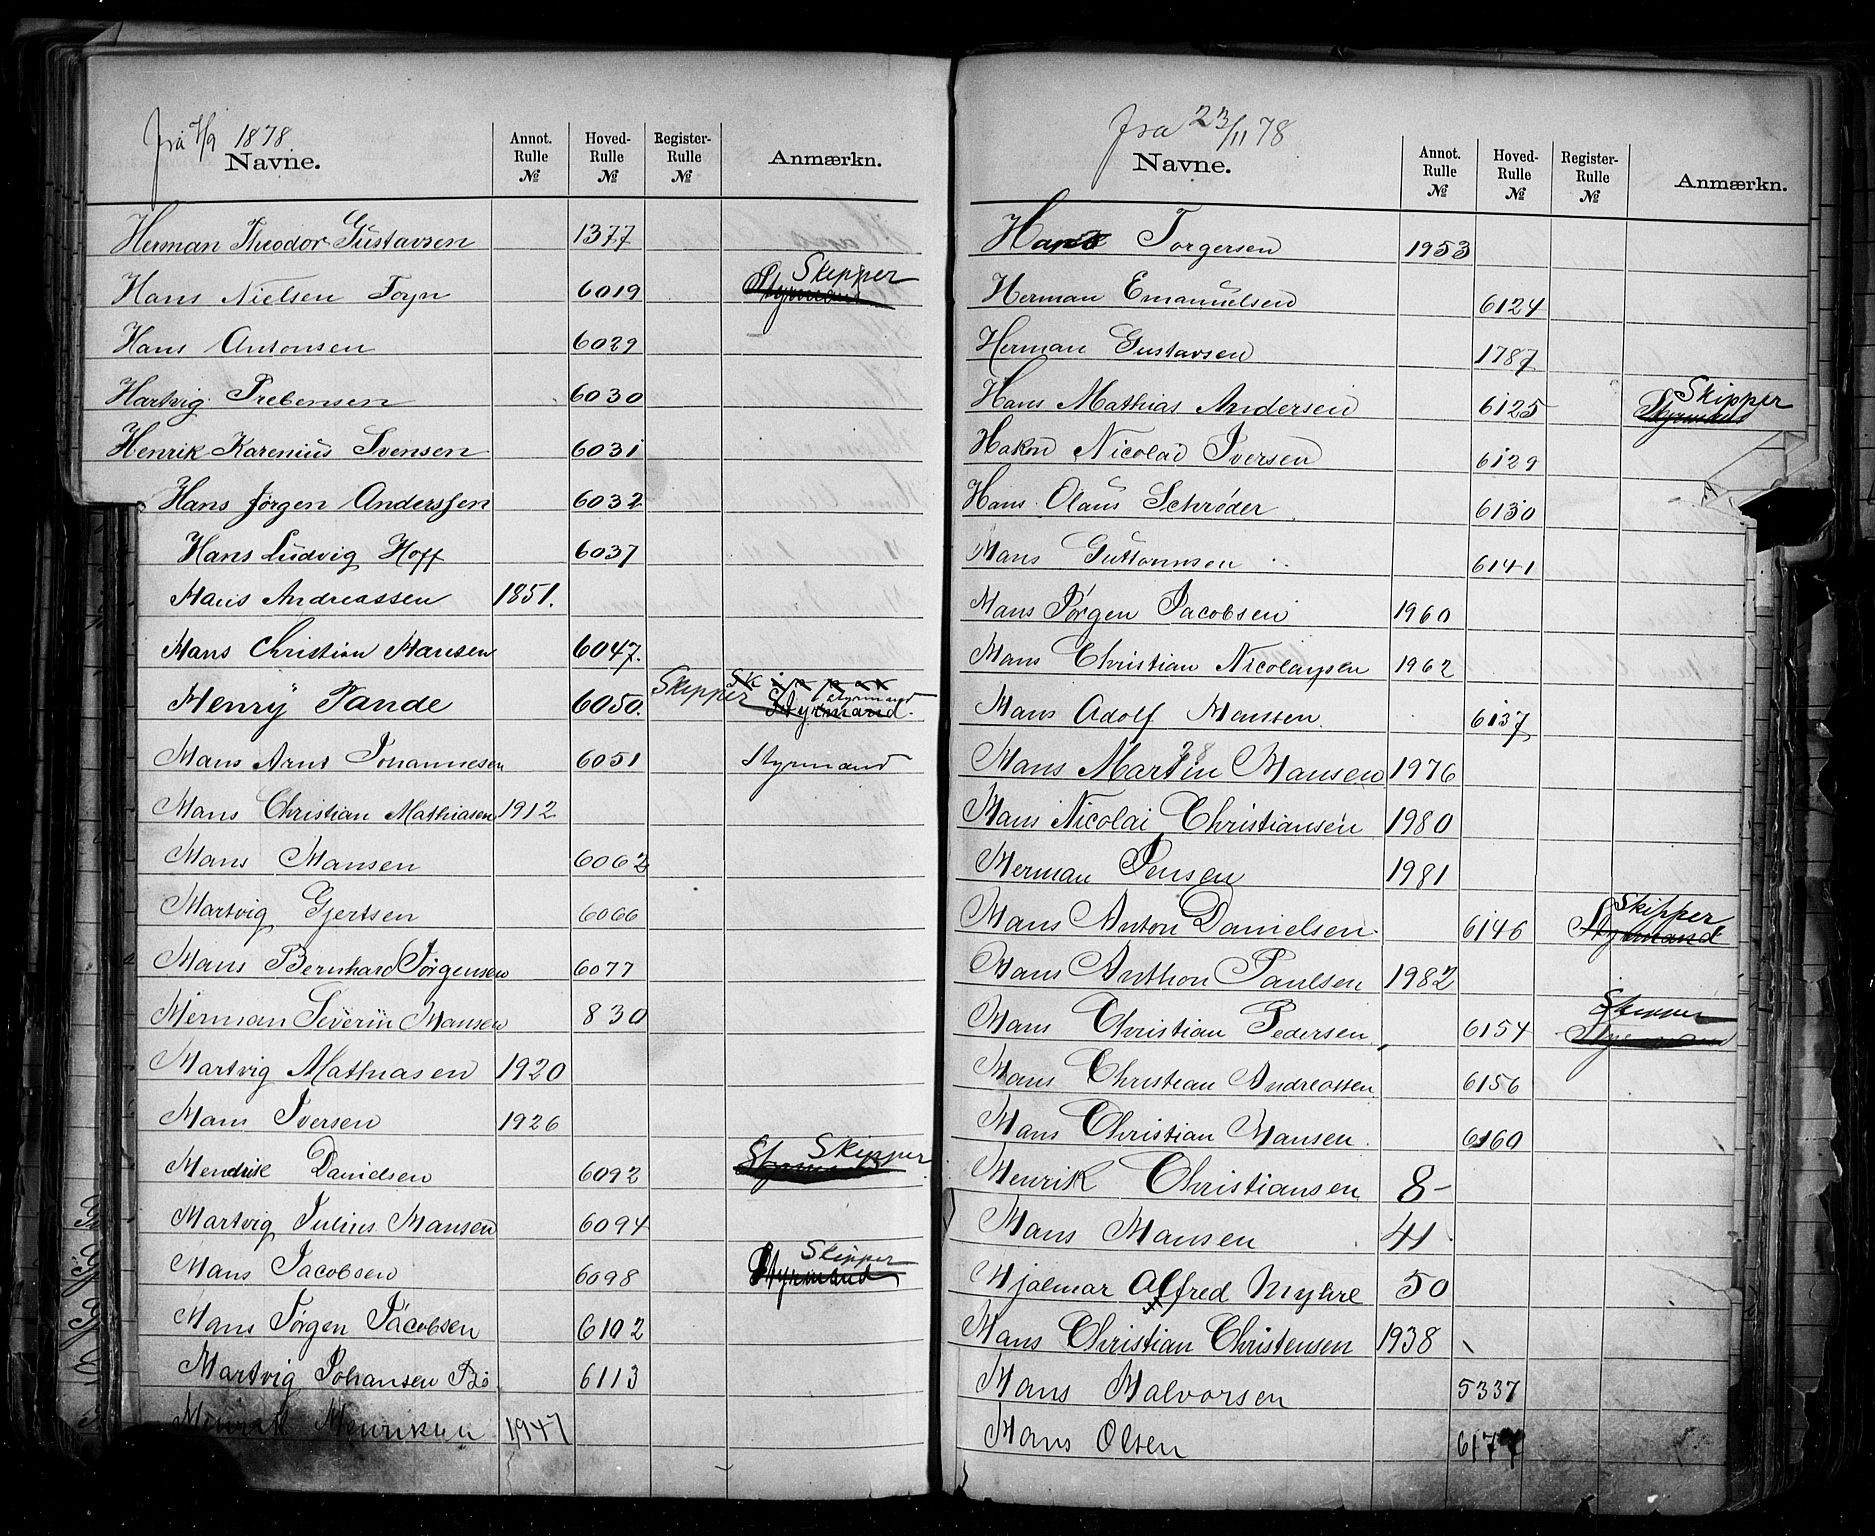 fra 7/9 1878
Navne. Annot. Rulle № Hoved-Rulle № Register-Rulle № Anmærkn.
Herman Theodor Gustavsen 1377
Hans Nielsen Foyn 6019 Styrmand Skipper
Hans Antonsen 6029
Hartvig Prebensen 6030
Henrik Karenius Svensen 6031
Hans Jørgen Anderssen 6032
Hans Ludvig Hoff 6037
Hans Andreassen 1851.
Hans Christian Hansen 6047.
Henry Sande 6050. Skipper Skipper Styrmand Styrmand.
Hans Arnt Johannesen 6051 Styrmand
Hans Christian Mathiasen 1912
Hans Hansen 6062
Hartvig Gjertsen 6066
Hans Bernhard Jørgensen 6077
Herman Severin Hansen 830
Hartvig Mathiasen 1920
Hans Iversen 1926
Hendrik Danielsen 6092 Styrmand Skipper
Hartvig Julius Hansen 6094
Hans Jacobsen 6098 Styrmand Skipper
Hans Jørgen Jacobsen 6102
Hartvig Johansen Bö 6113
Henrik Henriksen 1947
fra 23/11 78
Navne. Annot. Rulle № Hoved-Rulle № Register-Rulle № Anmærkn.
Hans Torgersen 1953
Herman Emanuelsen 6124
Herman Gustavsen 1787
Hans Mathias Andersen 6125 Skipper Styrmand
Hakon Nicolai Iversen 6129
Hans Olaus Schrøder 6130
Hans Guttormsen 6141
Hans Jørgen Jacobsen 1960
Hans Christian Nicolaysen 1962
Hans Adolf Hansen. 6137
Hans Martin Hansen 1976
Hans Nicolai Christiansen 1980
Herman Jensen 1981
Hans Anton Danielsen 6146 Skipper Styrmand
Hans Anthon Paulsen 1982
Hans Christian Pedersen 6154 Skipper Styrmand
Hans Christian Andreassen 6156
Hans Christian Hansen. 6160
Henrik Christiansen 8-
Hans Hansen 41
Hjalmar Alfred Myhre 50
Hans Christian Christensen 1938
Hans Halvorsen 5337
Hans Olsen 6177